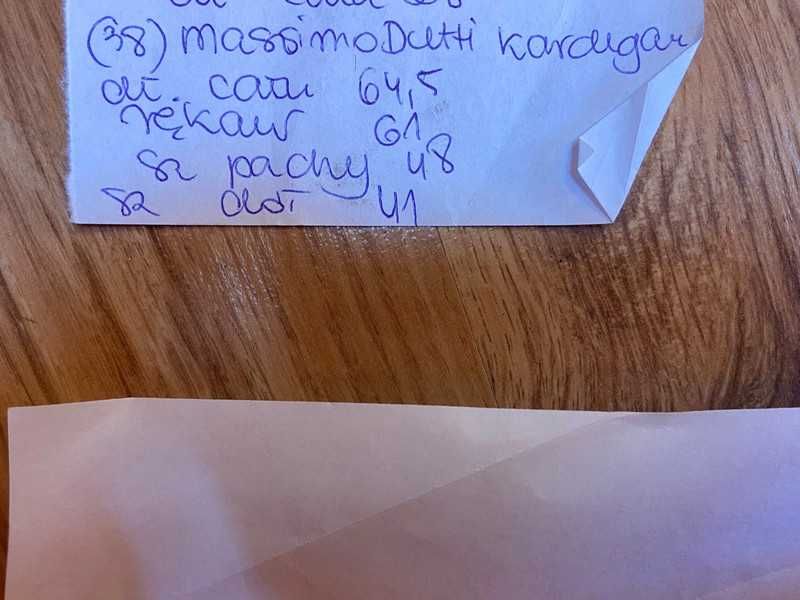 (38) Massimo Dutti kardigan
dł. cału 64,5
rękaw 61
sz pachy 48
sz dół 41